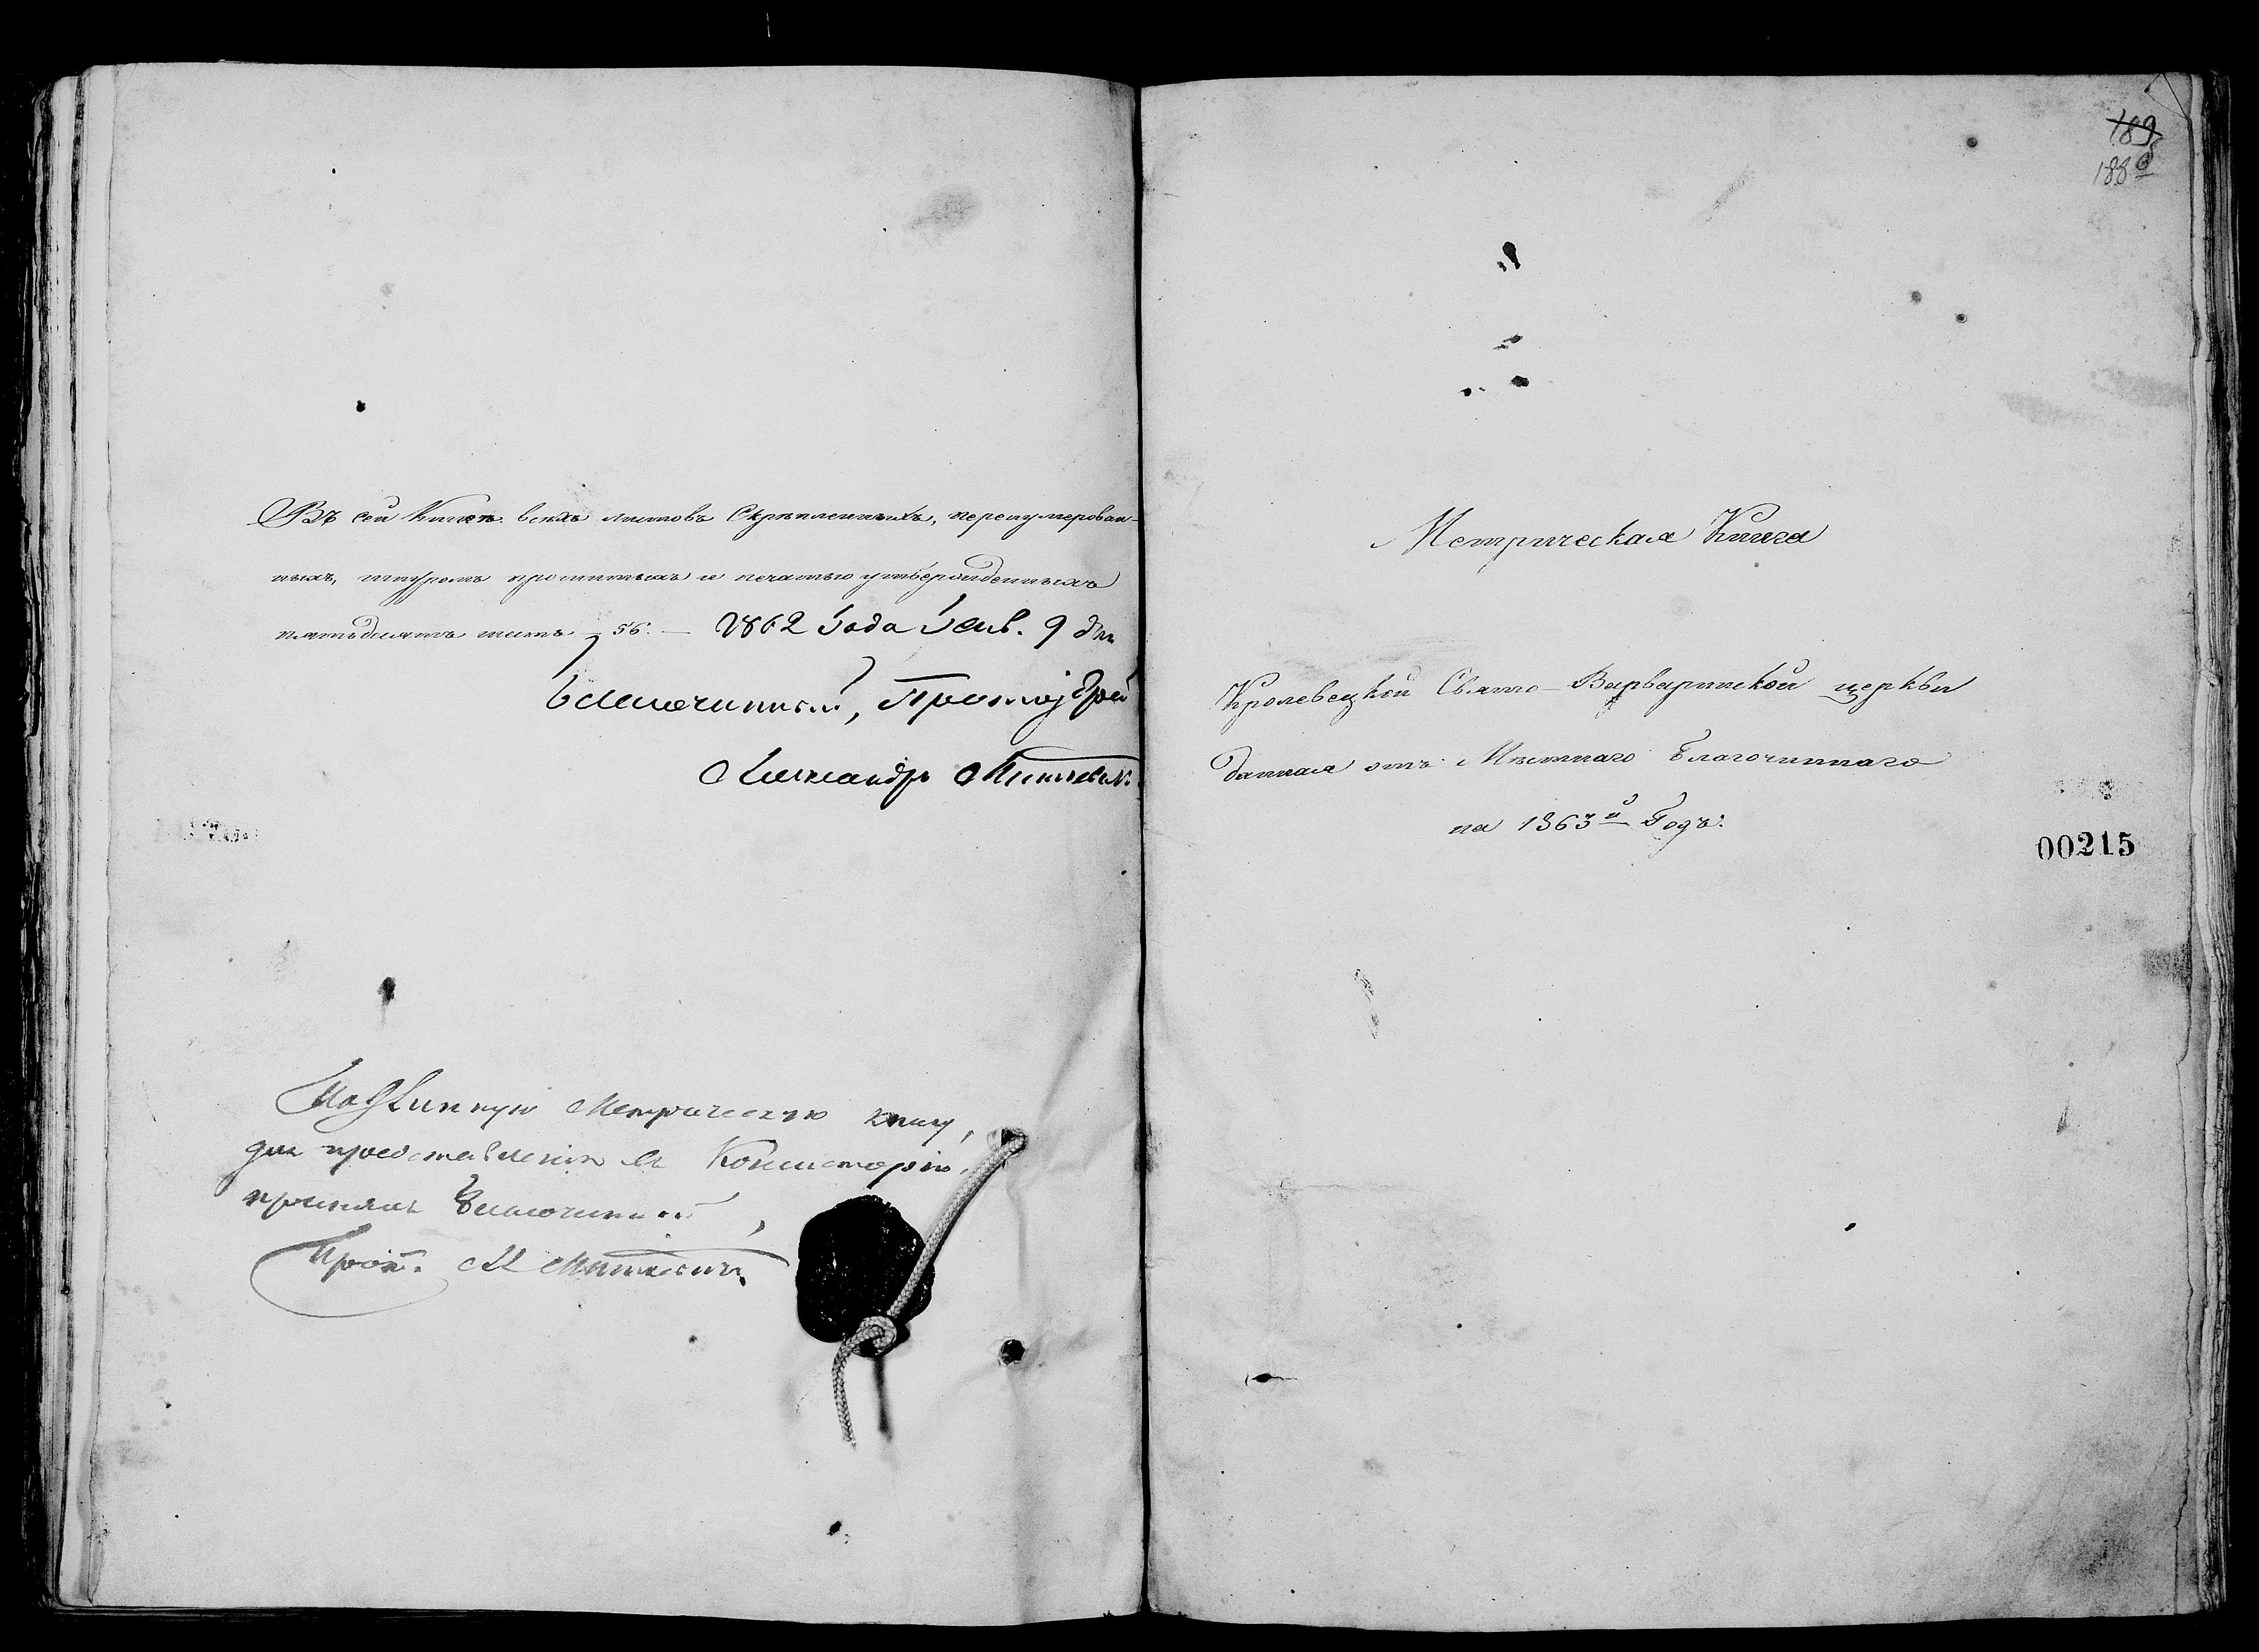 Въ сей Книгѣ всѣхъ листовъ Скрѣпленныхъ, перенумерован-
ныхъ, шнуромъ прошитыхъ и печатью утвержденныхъ
пятьдесятъ шесть 56. — 1862 года Генв. 9 дня
Благочинный, Протоіерей
Александръ
Подлинную Метрическую книгу,
для представленія въ Консисторію,
принялъ Благочинный,
Прот. А
189
188
Метрическая Книга
Кролевецкой Свято-Варваринской церкви
данная отъ Мѣстнаго Благочиннаго
на 1863й Годъ.
00215